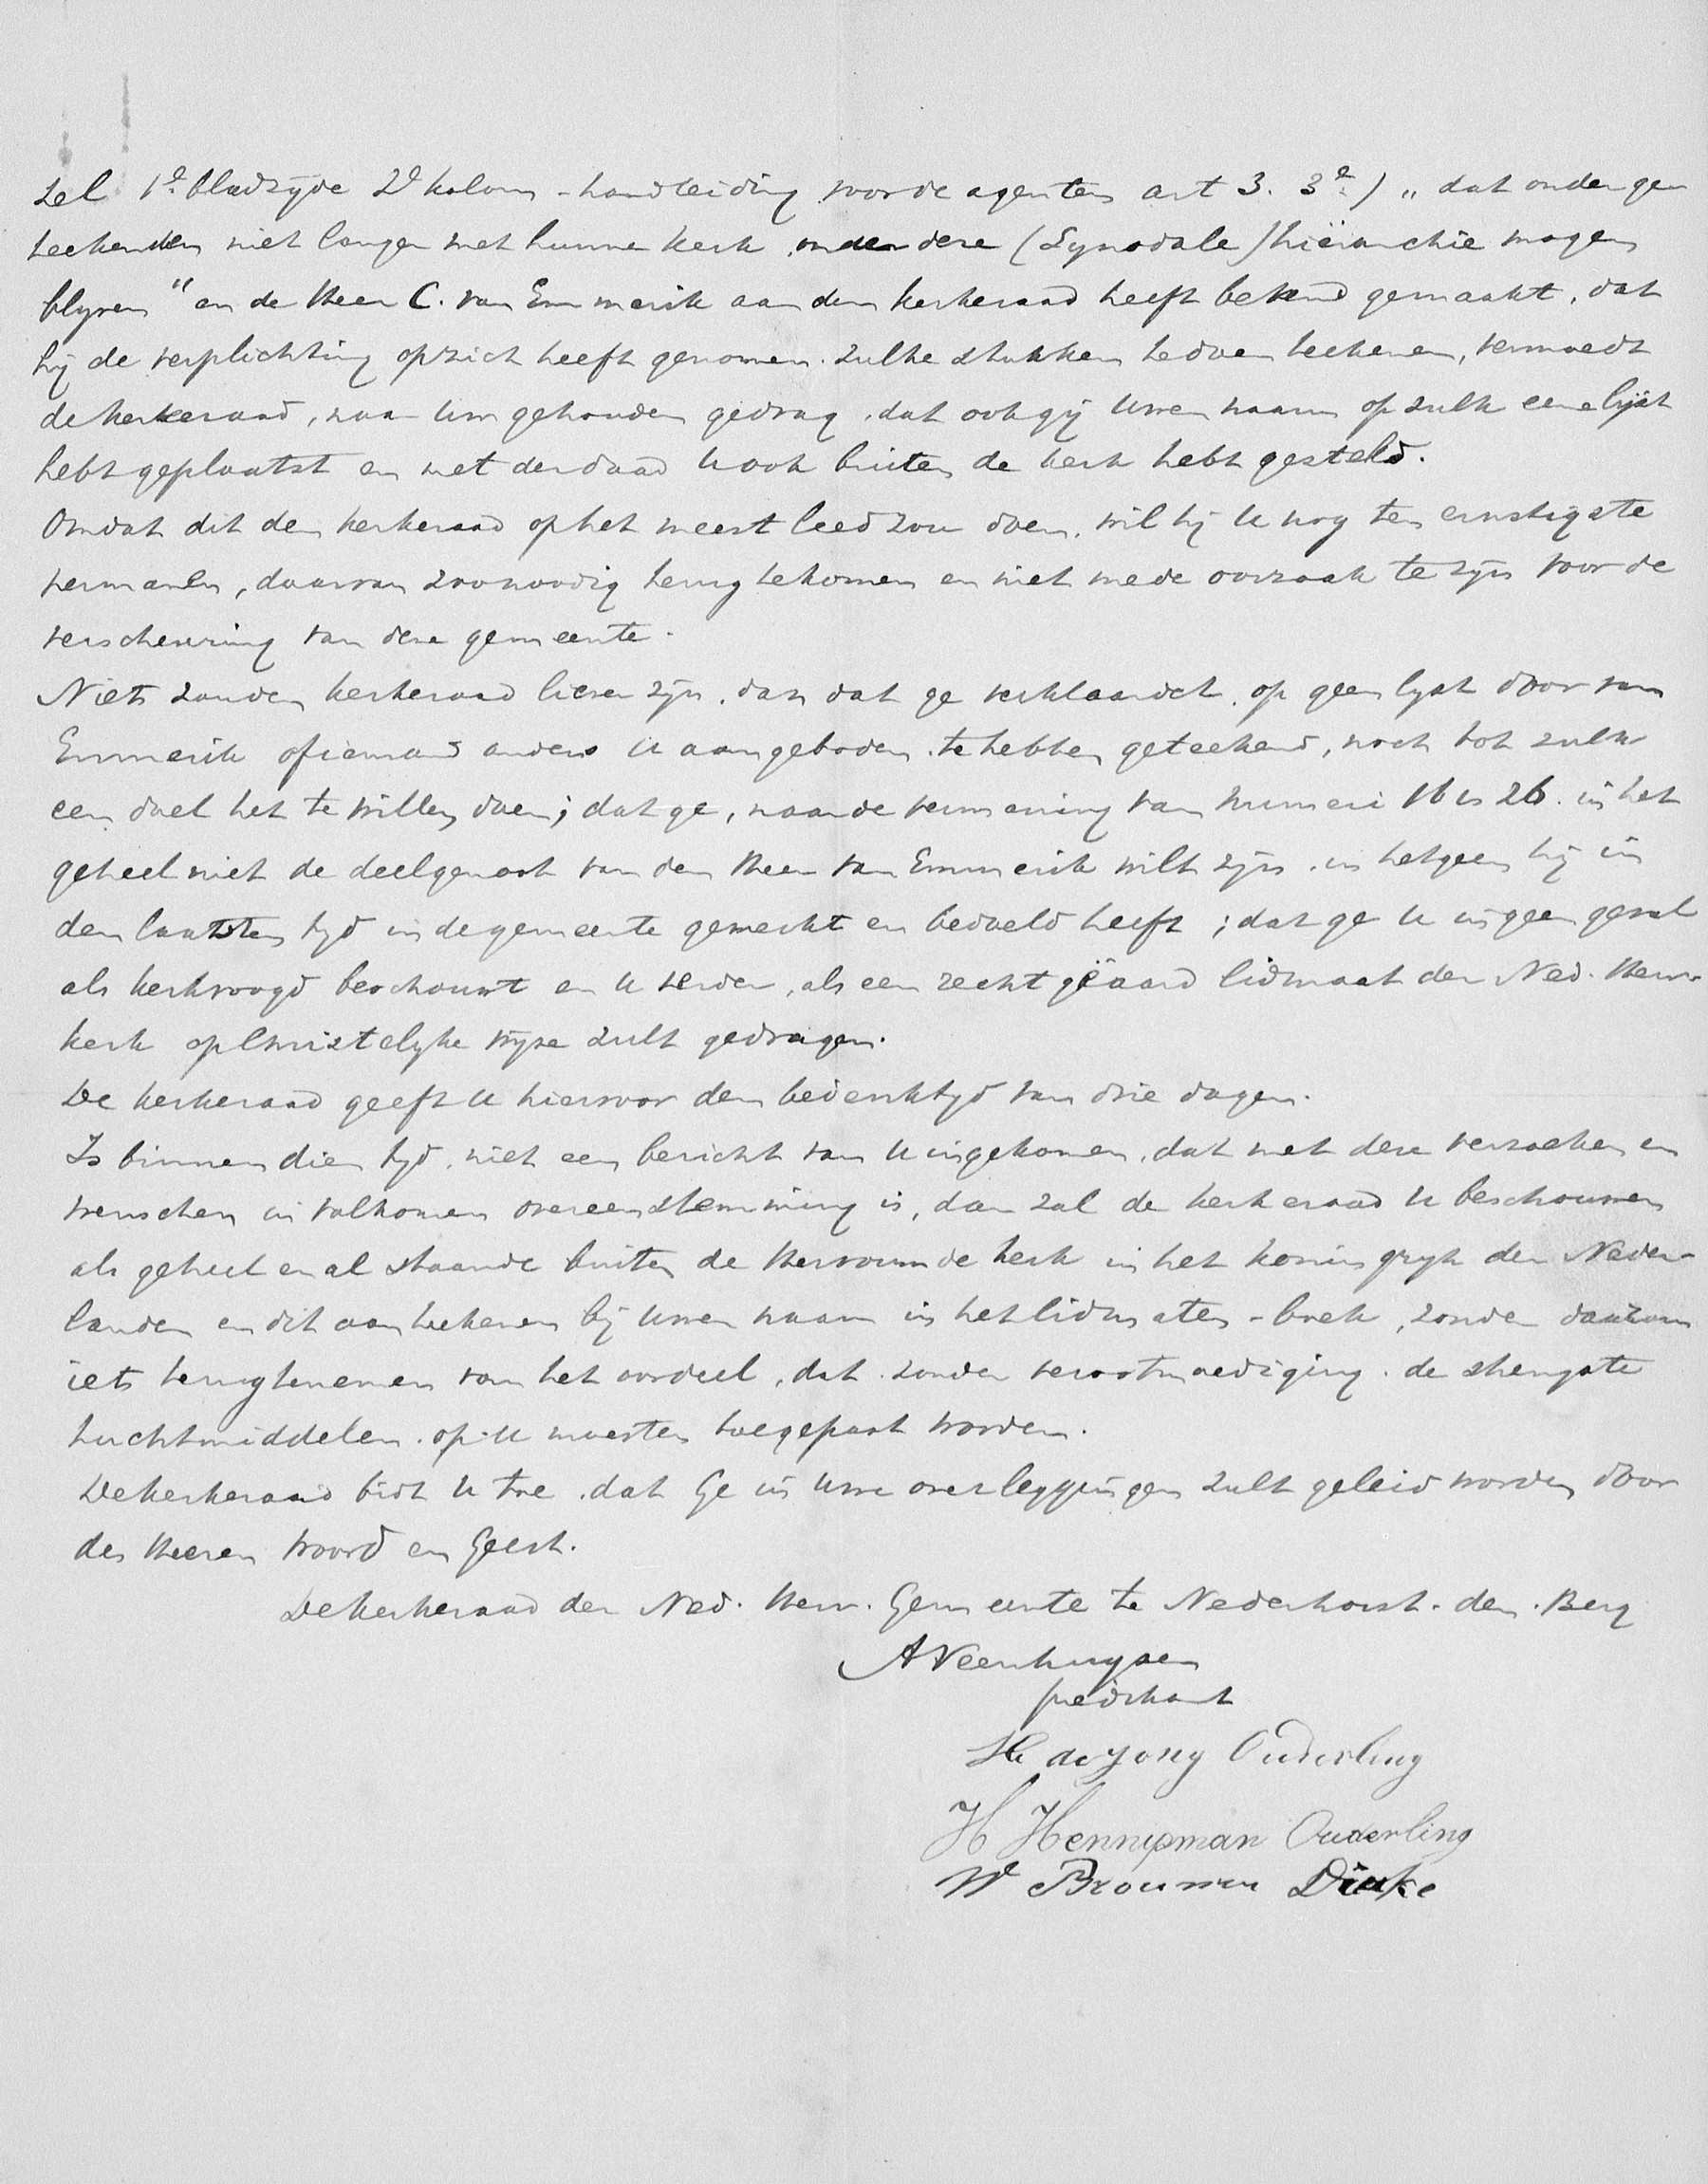 zel 1e bladzijde 2e kolom - handleiding voor de agenten art 3. 3e.) „ dat onderge
teekenden niet langer met hunne kerk onder deze (Synodale) hiërarchie mogen
blyven " en de Heer C. van Emmerik aan den kerkeraad heeft bekend gemaakt, dat
hij de verplichting op zich heeft genomen zulke stukken te doen teekenen, vermoedt
de kerkeraad, naar Uw gehouden gedrag, dat ook gij Uwen naam op zulk eene lijst
hebt geplaatst en met der daad U ook buiten de kerk hebt gesteld.
Omdat dit den kerkeraad op het meest leed zou doen, wil hij U nog ten ernstigste
vermanen, daarvan zoo noodig terug te komen en niet mede oorzaak te zijn voor de
verscheuring van deze gemeente.
Niets zou den kerkeraad liever zijn, dan dat ge verklaardet, op geen lyst door van
Emmerik of iemand anders U aangeboden, te hebben geteekend, noch tot zulk
een doel het te willen doen; dat ge, naar de vermaning van Numeri 16 vs 26. in het
geheel niet de deelgenoot van den Heer van Emmerik wilt zijn, in hetgeen hij in
den laatsten tyd in de gemeente gewerkt en bedoeld heeft; dat ge U in geen geval
als kerkvoogd beschouwt en U verder, als een recht geäard lidmaat der Ned. Herv.
kerk op Christelyke wyze zult gedragen.
De kerkeraad geeft U hiervoor den bedenktyd van drie dagen.
Is binnen dien tyd, niet een bericht van U ingekomen, dat met deze verzoeken en
wenschen in volkomen overeenstemming is, dan zal de kerkeraad U beschouwen
als geheel en al staande buiten de Hervormde kerk in het koningryk der Neder-
landen en dit aanteekenen bij Uwen naam in het lidmaten-boek, zonder daarom
iets terug te nemen van het oordeel, dat zonder verootmoediging de strengste
tuchtmiddelen op U moesten toegepast worden.
De kerkeraad bidt U toe, dat Ge in Uwe overleggingen zult geleid worden door
des Heeren Woord en Geest.
De kerkeraad der Ned. Herv. Gemeente te Nederhorst-den-Berg
A Veenhuyzen
predikant
H de Jong Ouderling
H Hennipman Ouderling
W Brouwer Diake